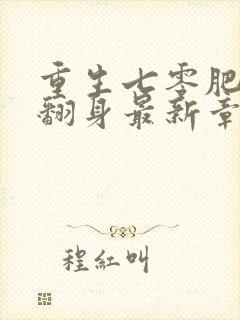 重生七零肥
翻身最新章
程紅叫